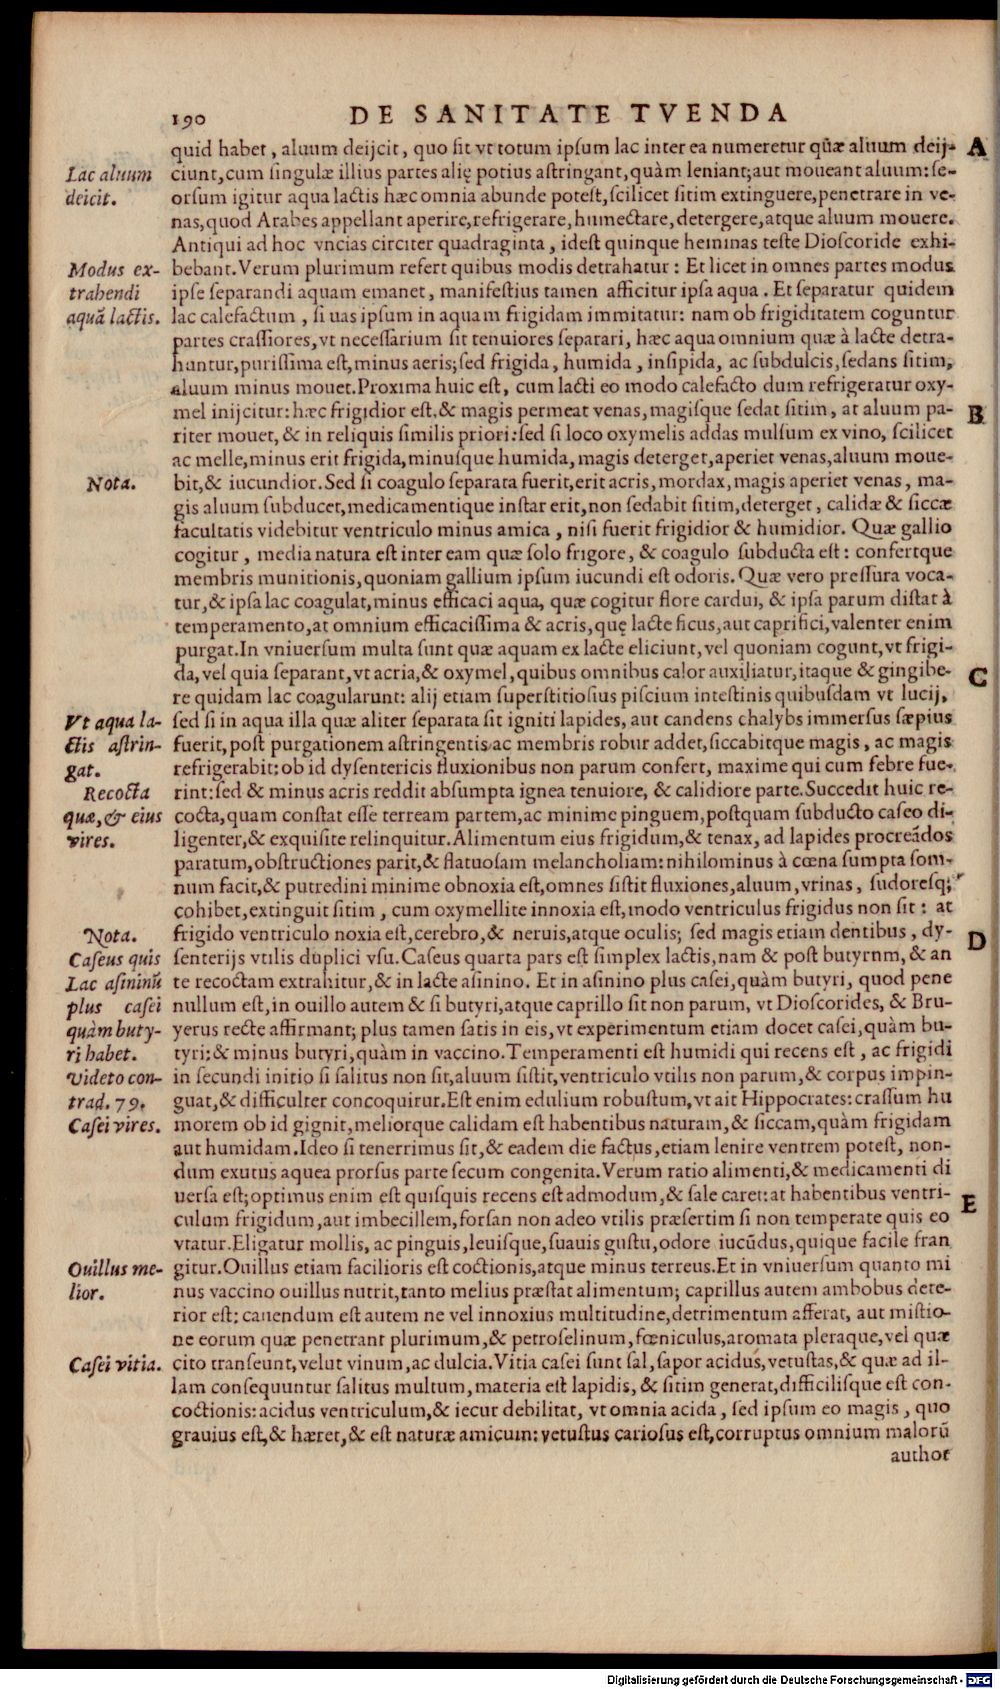 190 DE SANITATE TVENDA
quid habet, aluum deijcit, quo sit vt totum ipsum lac inter ea numeretur quæ aluum deij- A
Lac aluum ciunt, cum singulæ illius partes alię potius astringant, quàm leniant; aut moueant aluum: se-
deicit. orsum igitur aqua lactis hæc omnia abunde potest, scilicet sitim extinguere, penetrare in ve-
nas, quod Arabes appellant aperire, refrigerare, humectare, detergere, atque aluum mouere.
Antiqui ad hoc vncias circiter quadraginta, idest quinque heminas teste Dioscoride exhi-
Modus ex- bebant. Verum plurimum refert quibus modis detrahatur: Et licet in omnes partes modus
trahendi ipse separandi aquam emanet, manifestius tamen afficitur ipsa aqua. Et separatur quidem
aquã lactis. lac calefactum, si uas ipsum in aquam frigidam immitatur: nam ob frigiditatem coguntur
partes crassiores, vt necessarium sit tenuiores separari, hæc aqua omnium quæ à lacte detra-
huntur, purissima est, minus aeris; sed frigida, humida, insipida, ac subdulcis, sedans sitim,
aluum minus mouet. Proxima huic est, cum lacti eo modo calefacto dum refrigeratur oxy-
mel inijcitur: hæc frigidior est, & magis permeat venas, magisque sedat sitim, at aluum pa- B
riter mouet, & in reliquis similis priori: sed si loco oxymelis addas mulsum ex vino, scilicet
ac melle, minus erit frigida, minusque humida, magis deterget, aperiet venas, aluum moue-
Nota. bit, & iucundior. Sed si coagulo separata fuerit, erit acris, mordax, magis aperiet venas, ma-
gis aluum subducet, medicamentique instar erit, non sedabit sitim, deterget, calidæ & siccæ
facultatis videbitur ventriculo minus amica, nisi fuerit frigidior & humidior. Quæ gallio
cogitur, media natura est inter eam quæ solo frigore, & coagulo subducta est: confertque
membris munitionis, quoniam gallium ipsum iucundi est odoris. Quæ vero pressura voca-
tur, & ipsa lac coagulat, minus efficaci aqua, quæ cogitur flore cardui, & ipsa parum distat à
temperamento, at omnium efficacissima & acris, quę lacte ficus, aut caprifici, valenter enim
purgat. In vniuersum multa sunt quæ aquam ex lacte eliciunt, vel quoniam cogunt, vt frigi-
da, vel quia separant, vt acria, & oxymel, quibus omnibus calor auxiliatur, itaque & gingibe- C
re quidam lac coagularunt: alij etiam superstitiosius piscium intestinis quibusdam vt lucij,
Vt aqua la- sed si in aqua illa quæ aliter separata sit igniti lapides, aut candens chalybs immersus sæpius
ctis astrin- fuerit, post purgationem astringentis ac membris robur addet, siccabitque magis, ac magis
gat. refrigerabit: ob id dysentericis fluxionibus non parum confert, maxime qui cum febre fue-
Recocta rint: sed & minus acris reddit absumpta ignea tenuiore, & calidiore parte. Succedit huic re-
quæ, & eius cocta, quam constat esse terream partem, ac minime pinguem, postquam subducto caseo di-
vires. ligenter, & exquisite relinquitur. Alimentum eius frigidum, & tenax, ad lapides procreãdos
paratum, obstructiones parit, & flatuosam melancholiam: nihilominus à cœna sumpta som-
num facit, & putredini minime obnoxia est, omnes sistit fluxiones, aluum, vrinas, sudoresq;
cohibet, extinguit sitim, cum oxymellite innoxia est, modo ventriculus frigidus non sit: at
Nota. frigido ventriculo noxia est, cerebro, & neruis, atque oculis; sed magis etiam dentibus, dy- D
Caseus quis senterijs vtilis duplici vsu. Caseus quarta pars est simplex lactis, nam & post butyrnm, & an
Lac asininũ te recoctam extrahitur, & in lacte asinino. Et in asinino plus casei, quàm butyri, quod pene
plus casei nullum est, in ouillo autem & si butyri, atque caprillo sit non parum, vt Dioscorides, & Bru-
quàm buty- yerus recte affirmant; plus tamen satis in eis, vt experimentum etiam docet casei, quàm bu-
ri habet. tyri: & minus butyri, quàm in vaccino. Temperamenti est humidi qui recens est, ac frigidi
Videto con- in secundi initio si salitus non sit, aluum sistit, ventriculo vtilis non parum, & corpus impin-
trad. 79. guat, & difficulter concoquitur. Est enim edulium robustum, vt ait Hippocrates: crassum hu
Casei vires. morem ob id gignit, meliorque calidam est habentibus naturam, & siccam, quàm frigidam
aut humidam. Ideo si tenerrimus sit, & eadem die factus, etiam lenire ventrem potest, non-
dum exutus aquea prorsus parte secum congenita. Verum ratio alimenti, & medicamenti di
uersa est; optimus enim est quisquis recens est admodum, & sale caret: at habentibus ventri- E
culum frigidum, aut imbecillem, forsan non adeo vtilis præsertim si non temperate quis eo
vtatur. Eligatur mollis, ac pinguis, leuisque, suauis gustu, odore iucũdus, quique facile fran
Ouillus me- gitur. Ouillus etiam facilioris est coctionis, atque minus terreus. Et in vniuersum quanto mi
lior. nus vaccino ouillus nutrit, tanto melius præstat alimentum; caprillus autem ambobus dete-
rior est: cauendum est autem ne vel innoxius multitudine, detrimentum afferat, aut mistio-
ne eorum quæ penetrant plurimum, & petroselinum, fœniculus, aromata pleraque, vel quæ
Casei vitia. cito transeunt, velut vinum, ac dulcia. Vitia casei sunt sal, sapor acidus, vetustas, & quæ ad il-
lam consequuntur salitus multum, materia est lapidis, & sitim generat, difficilisque est con-
coctionis: acidus ventriculum, & iecur debilitat, vt omnia acida, sed ipsum eo magis, quo
grauius est, & hæret, & est naturæ amicum: vetustus cariosus est, corruptus omnium malorũ
author
Digitalisierung gefördert durch die Deutsche Forschungsgemeinschaft - DFG